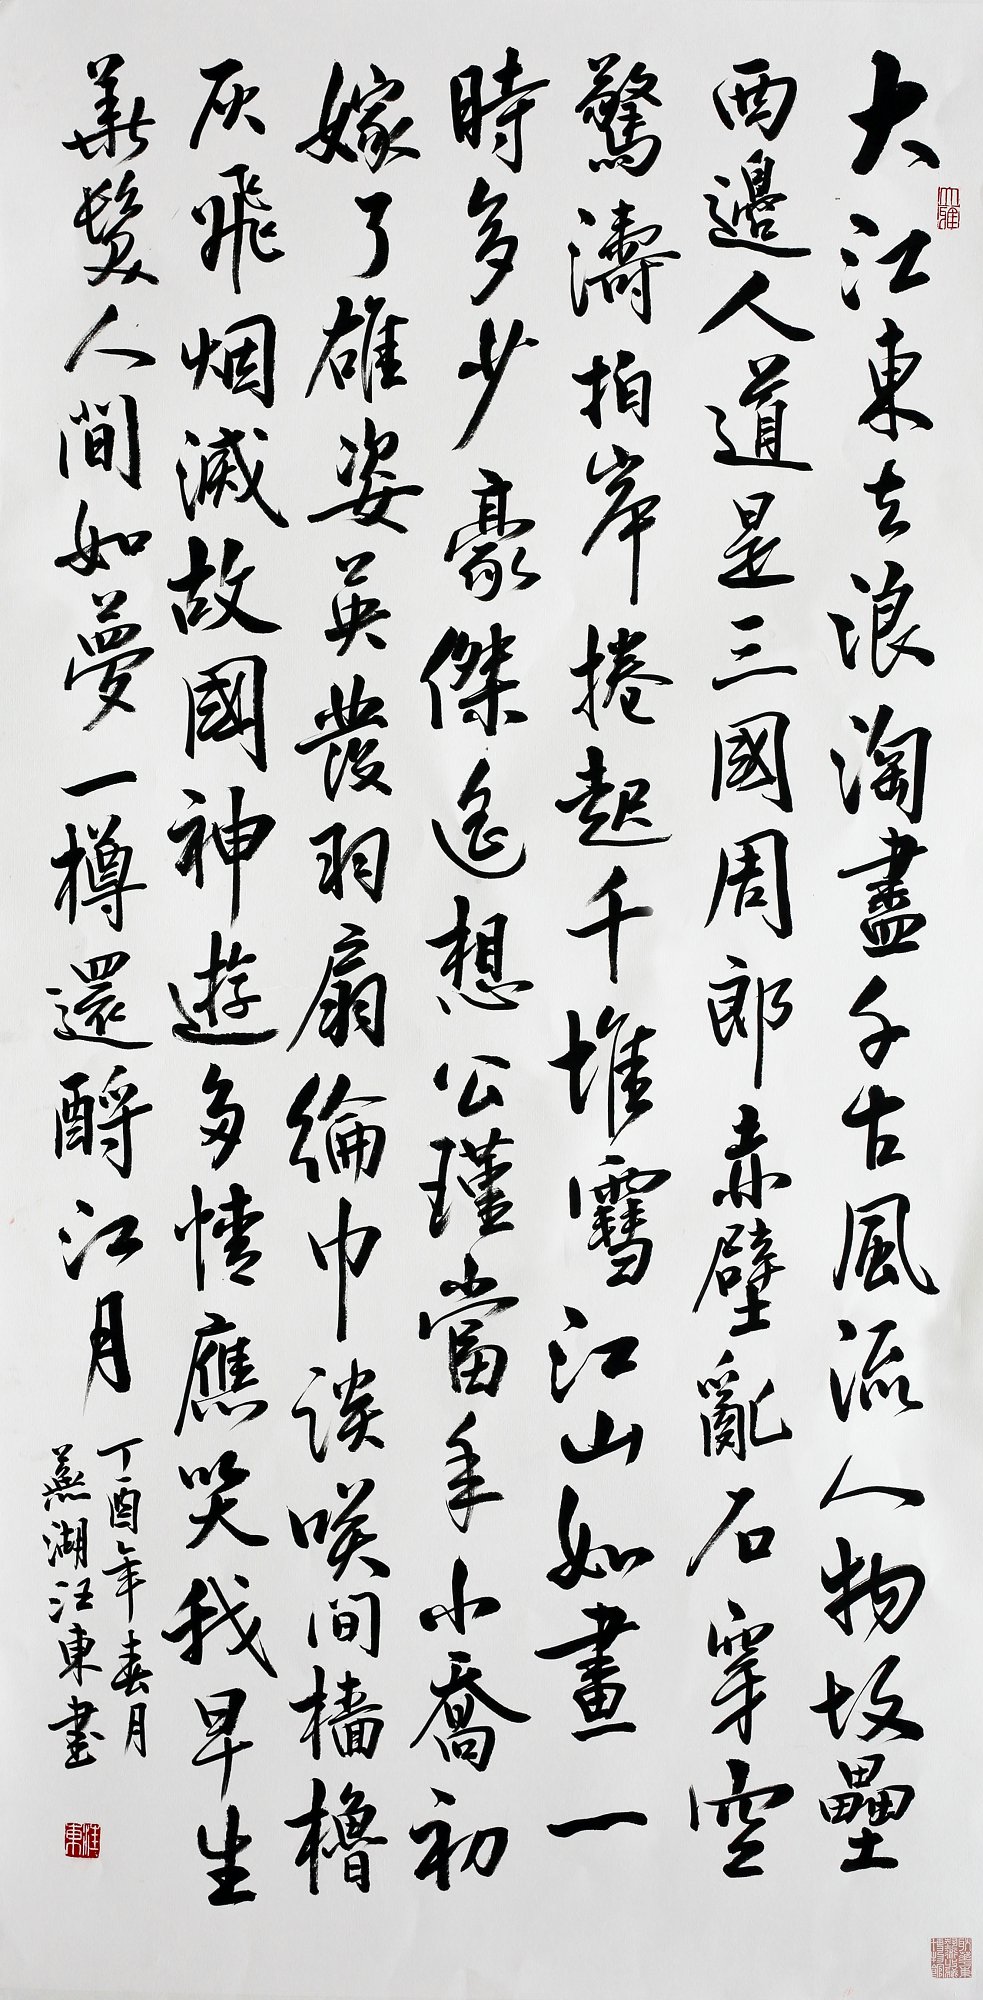 大江東去浪淘盡千古風流人物故壘
西邊人道是三國周郎赤壁亂石穿空
驚濤拍岸捲起千堆雪江山如畫一
時多少豪傑遙想公瑾當年小喬初
嫁了雄姿英發羽扇綸巾談咲間檣櫓
灰飛烟滅故國神遊多情應笑我早生
華髮人間如夢一樽還酹江月
丁酉年春月
蕪湖汪東書
大雅
汪東